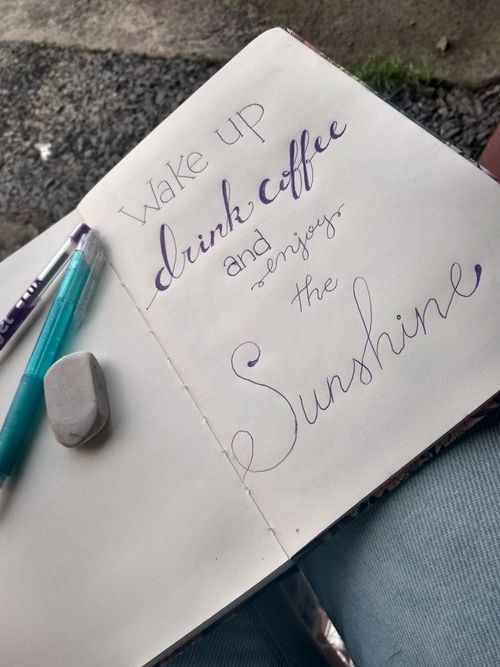 Wake up
drink coffee
and enjoy
the
Sunshine